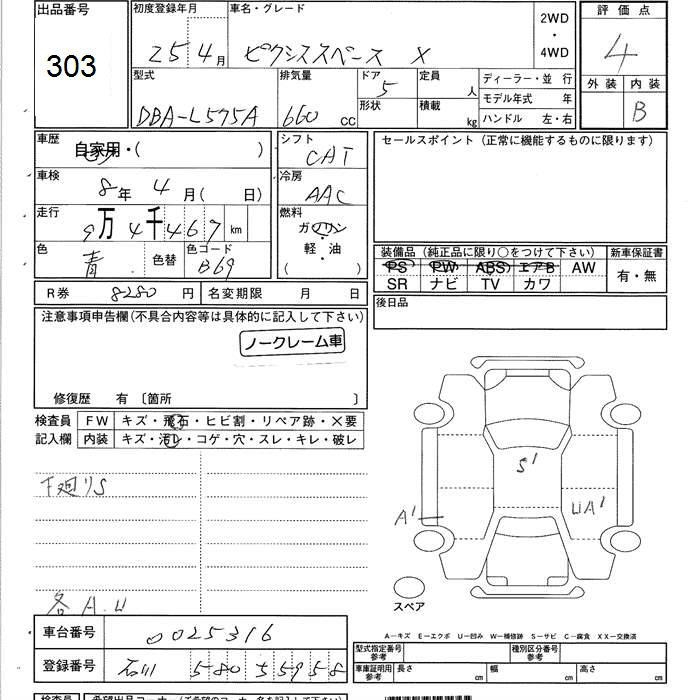 出品番号
303
初度登録年月
25 4月
車名・グレード
ピクシススペース X
2WD
・
4WD
評価点
4
外装 内装
B
型式
DBA-L575A
排気量
660 cc
ドア
5
形状
定員
人
積載
kg
ディーラー・並行
モデル年式 年
ハンドル 左・右
車歴
自家用・( )
車検
8年 4月( 日)
走行
9万4千467km
色
青
色替
色コード
B69
シフト
CAT
冷房
AAC
燃料
ガソリン
軽・油
( )
セールスポイント(正常に機能するものに限ります)
装備品(純正品に限り○をつけて下さい)
PS PW ABS エアB AW
SR ナビ TV カワ
新車保証書
有・無
R券 8280円
名変期限 月 日
後日品
注意事項申告欄(不具合内容等は具体的に記入して下さい)
ノークレーム車
修復歴 有〔箇所 〕
検査員
記入欄
FW キズ・飛石・ヒビ割・リペア跡・×要
内装 キズ・汚レ・コゲ・穴・スレ・キレ・破レ
下廻りS
各A.U
S1
A1
UA1
スペア
A-キズ E-エクボ U-凹み W-補修跡 S-サビ C-腐食 XX-交換済
車台番号
0025316
登録番号
石川 580 5 5958
型式指定番号
参考
種別区分番号
参考
車庫証明用
参考
長さ cm
幅 cm
高さ cm